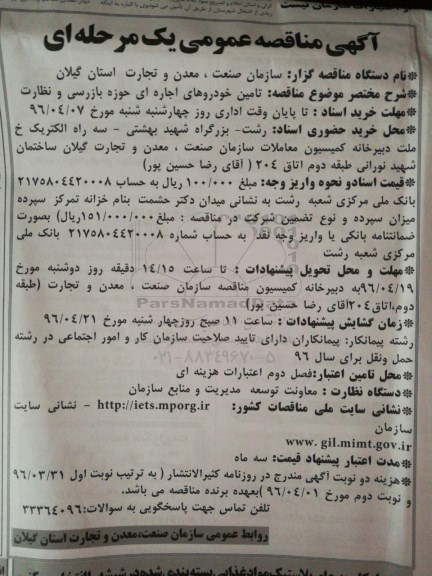 آگهی مناقصه عمومی یک مرحله ای
※نام دستگاه مناقصه گزار: سازمان صنعت ، معدن و تجارت استان گیلان
※شرح مختصر موضوع مناقصه: تامین خودروهای اجاره ای حوزه بازرسی و نظارت
※مهلت خرید اسناد : تا پایان وقت اداری روز چهارشنبه شنبه مورخ ۹۶/۰۴/۰۷
※محل خرید حضوری اسناد: رشت- بزرگراه شهید بهشتی - سه راه الکتریک خ
ملت دبیرخانه کمیسیون معاملات سازمان صنعت ، معدن و تجارت گیلان ساختمان
شهید نورانی طبقه دوم اتاق ۲۰۴ ( آقای رضا حسین پور)
※قیمت اسنادو نحوه واریز وجه: مبلغ ۱۰۰/۰۰۰ ریال به حساب ۲۱۷۵۸۰۴۴۲۰۰۰۸
بانک ملی مرکزی شعبه رشت به نشانی میدان دکتر حشمت بنام خزانه تمرکز سپرده
میزان سپرده و نوع تضمین شرکت در مناقصه : مبلغ۱۵۱/۰۰۰/۰۰۰ریال) بصورت
ضمانتنامه بانکی یا واریز وجه نقد به حساب شماره ۲۱۷۵۸۰۴۴۲۰۰۰۸ بانک ملی
مرکزی شعبه رشت
※مهلت و محل تحویل پیشنهادات : تا ساعت ۱۴/۱۵ دقیقه روز دوشنبه مورخ
۹۶/۰۴/۱۹به دبیرخانه کمیسیون مناقصه سازمان صنعت ، معدن و تجارت (طبقه
دوم،اتاق۲۰۴آقای رضا حسین پور)
※زمان گشایش پیشنهادات : ساعت ۱۱ صبح روزچهار شنبه مورخ ۹۶/۰۴/۲۱
رشته پیمانکار: پیمانکاران دارای تایید صلاحیت سازمان کار و امور اجتماعی در رشته
حمل ونقل برای سال ۹۶
※محل تامین اعتبار:فصل دوم اعتبارات هزینه ای
※دستگاه نظارت : معاونت توسعه مدیریت و منابع سازمان
※نشانی سایت ملی مناقصات کشور: http://iets.mporg.ir - نشانی سایت
سازمان
www. gil.mimt.gov.ir
※مدت اعتبار پیشنهاد قیمت: سه ماه
※هزینه دو نوبت آگهی مندرج در روزنامه کثیرالانتشار ( به ترتیب نوبت اول ۹۶/۰۳/۳۱
و نوبت دوم مورخ ۹۶/۰۴/۰۱ )بعهده برنده مناقصه می باشد.
تلفن تماس جهت پاسخگویی به سوالات:۳۳۳۶۴۰۹۶
روابط عمومی سازمان صنعت،معدن و تجارت استان گیلان
ParsNamadData
۰۲۱-۸۸۳۴۹۶۷۰-۵